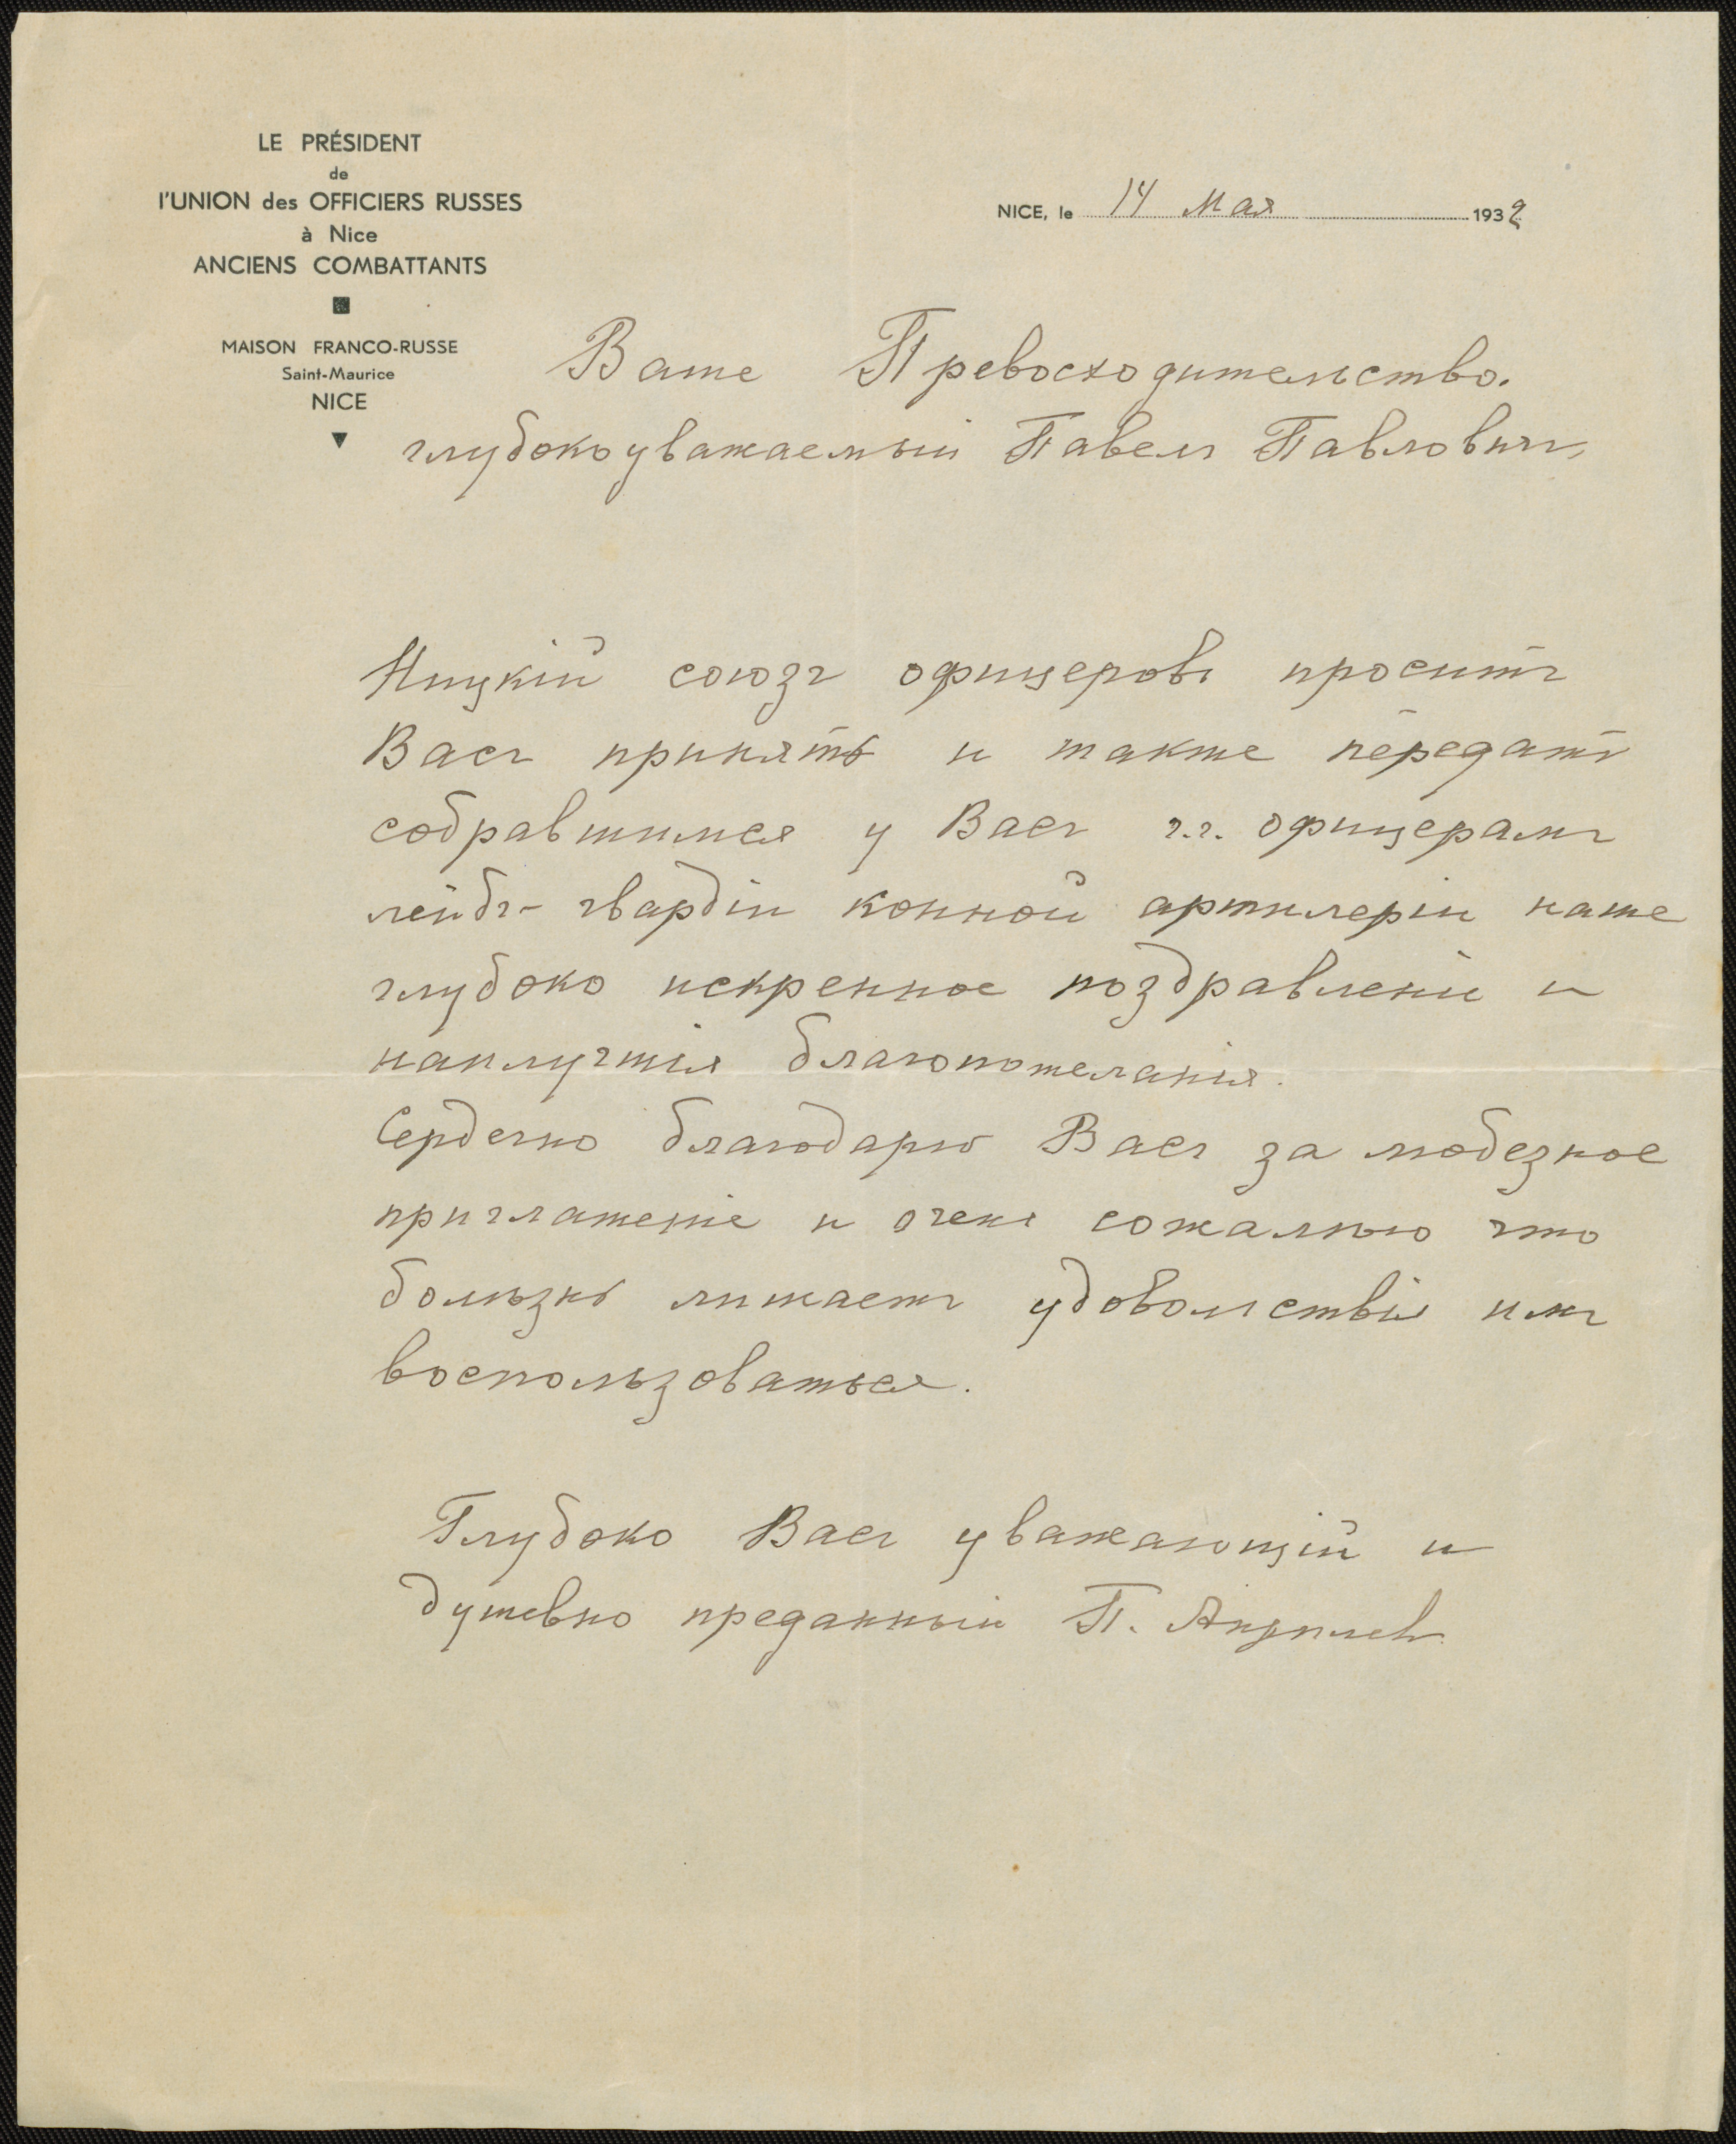 LE PRÉSIDENT
de
l'UNION des OFFICIERS RUSSES
à Nice
ANCIENS COMBATTANTS
MAISON FRANCO-RUSSE
Saint-Maurice
NICE
NICE, le 14 Мая 1939
Ваше Превосходительство.
глубокоуважаемый Павелъ Павловичъ,
Ницкій союзъ офицеровъ проситъ
Васъ принять и также передать
собравшимся у Васъ г.г. офицерамъ
лейбъ-гвардіи конной артилеріи наше
глубоко искренное поздравленіе и
наилучшія благопожеланія.
Сердечно благодарю Васъ за любезное
приглашеніе и очень сожалѣю что
болѣзнь лишаетъ удовольствія имъ
воспользоваться.
Глубоко Васъ уважающій и
душевно преданный П.